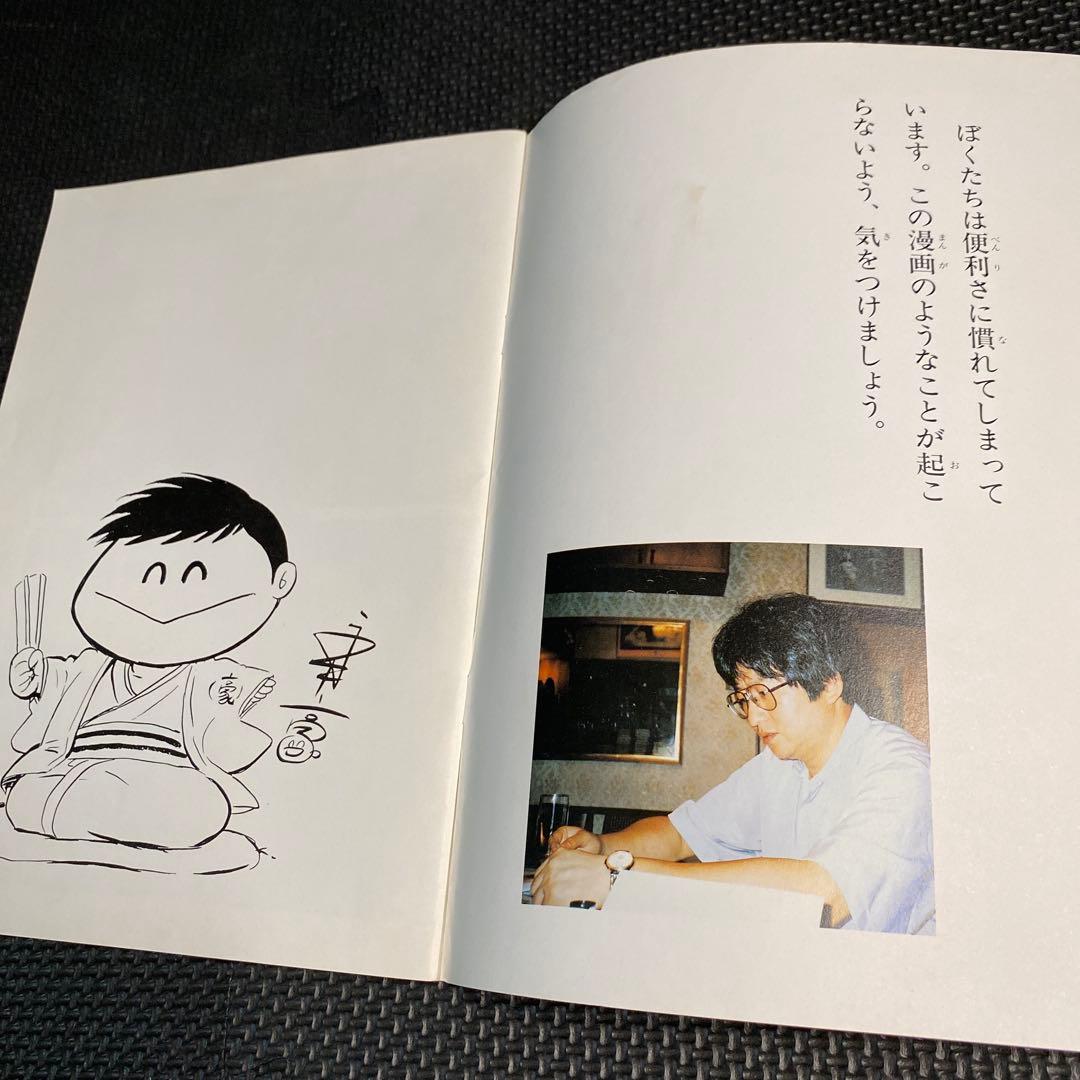 ぼくたちは便利さに慣れてしまって
います。この漫画のようなことが起こ
らないよう、気をつけましょう。
豪